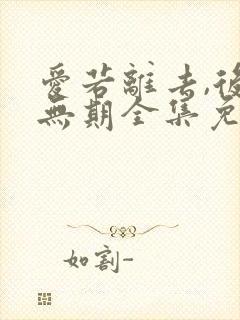 愛若離去,後
無期全集免
如割-